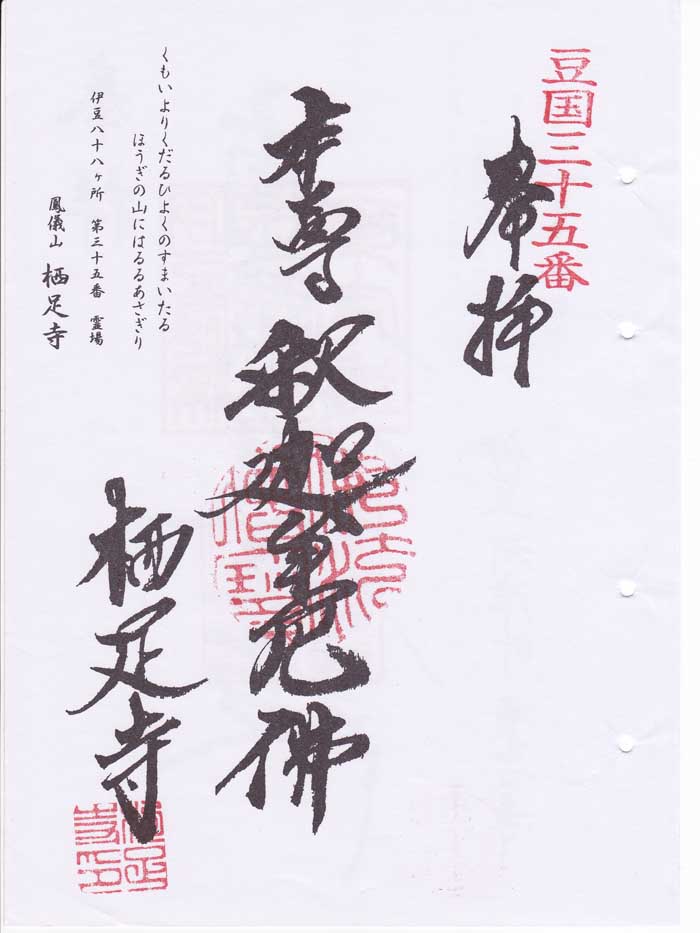 豆国三十五番
奉拝
本尊 釈迦牟尼佛
くもいよりくだるひよくのすまいたる
ほうぎの山にはるるあさぎり
伊豆八十八ヶ所 第三十五番 霊場
鳳儀山 栖足寺
栖足寺